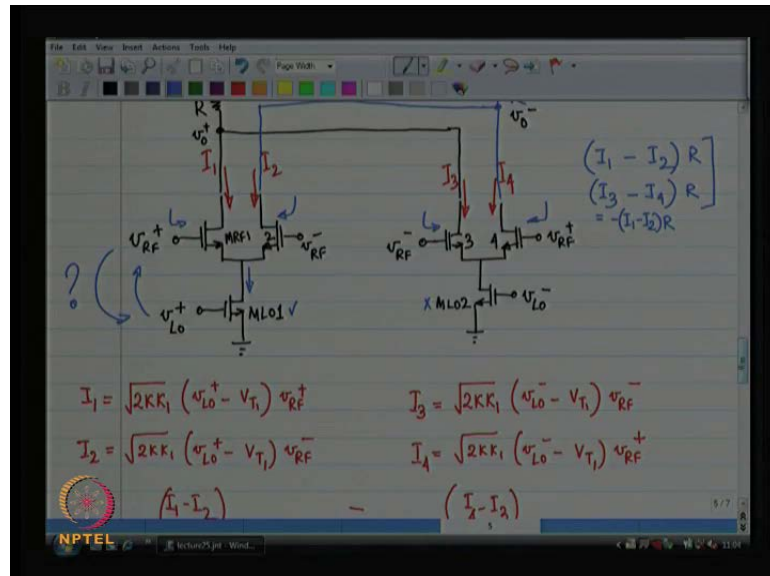 File Edit View Insert Actions Tools Help
Page Width
R
v₀⁺
v₀⁻
I₁
I₂
I₃
I₄
(I₁ - I₂) R
(I₃ - I₄) R
= -(I₁-I₂)R
v_RF⁺
MRF1
2
v_RF⁻
v_RF⁻
3
4
v_RF⁺
?
v_LO⁺
MLO1 ✓
x MLO2
v_LO⁻
I₁ = √2KK₁ (v_LO⁺ - V_T₁) v_RF⁺
I₃ = √2KK₁ (v_LO⁻ - V_T₁) v_RF⁻
I₂ = √2KK₁ (v_LO⁺ - V_T₁) v_RF⁻
I₄ = √2KK₁ (v_LO⁻ - V_T₁) v_RF⁺
(I₁-I₂) - (I₄-I₃)
5/7
5
NPTEL
lecture25.jnt - Wind...
11:04